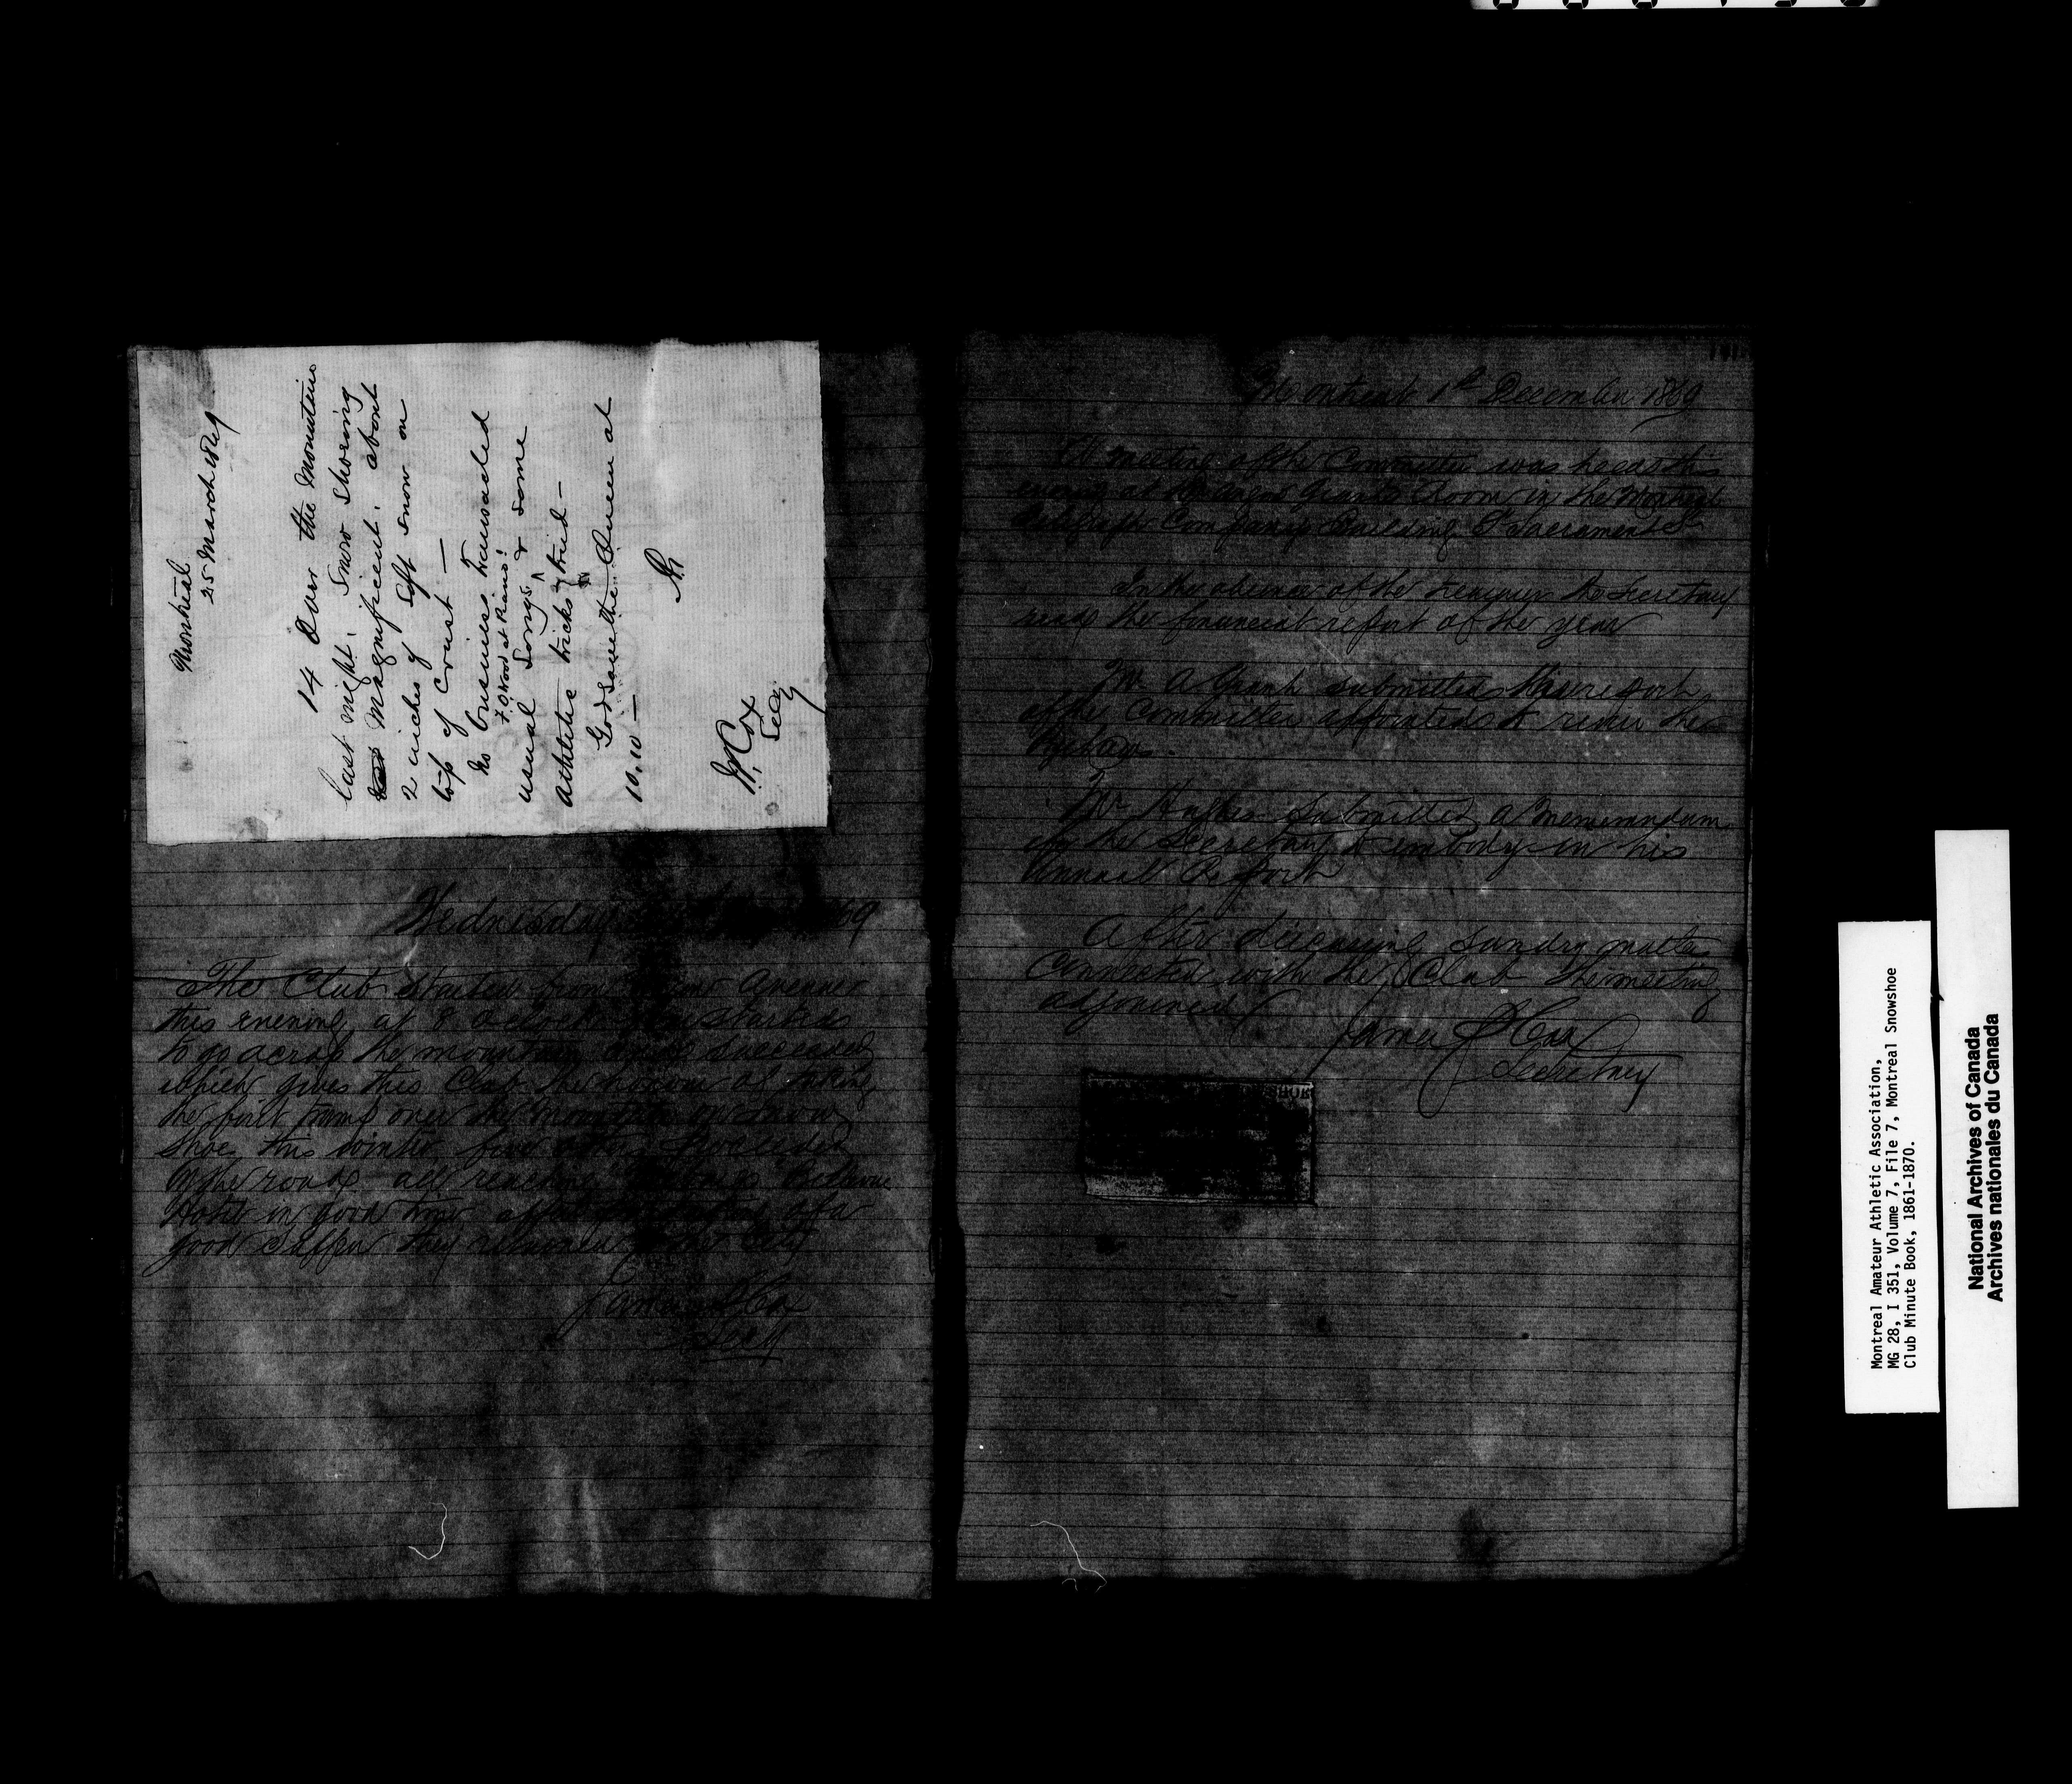 Montreal
25 March 1869
14 Over the Mountain
last night. Snow Shoeing
Magnificent. about
2 inches of soft snow on
top of crust —
No business transacted
F.O. Wood at Piano!
usual songs & some
athletic tricks tried —
God save the Queen at
10.10 —
Cox
Secy
Wednesday 1869
The Club started from Avenue
this evening at 8 oclock started
to go across the mountain succeeded
which gives this Club the honour of taking
the first tramp over the Mountain on Snow
Shoes this winter, five others proceeded
by the road all reaching
Hotel in good time after of a
good supper they returned City
James Cox
Secy
Montreal 1st December 1869
A meeting of the Committee was held this
evening at Grant's Room in the Montreal
Telegraph Company Building St Sacrament St
In the absence of the Treasurer the Secretary
read the financial report of the year
Mr A Grant submitted report
of the Committee appointed to revise the
Mr submitted a Memorandum
for the Secretary to embody in his
Annual Report
After discussing sundry matters
Connected with the Club the meeting
adjourned
James Cox
Secretary
Montreal Amateur Athletic Association,
MG 28, I 351, Volume 7, File 7, Montreal Snowshoe
Club Minute Book, 1861-1870.
National Archives of Canada
Archives nationales du Canada